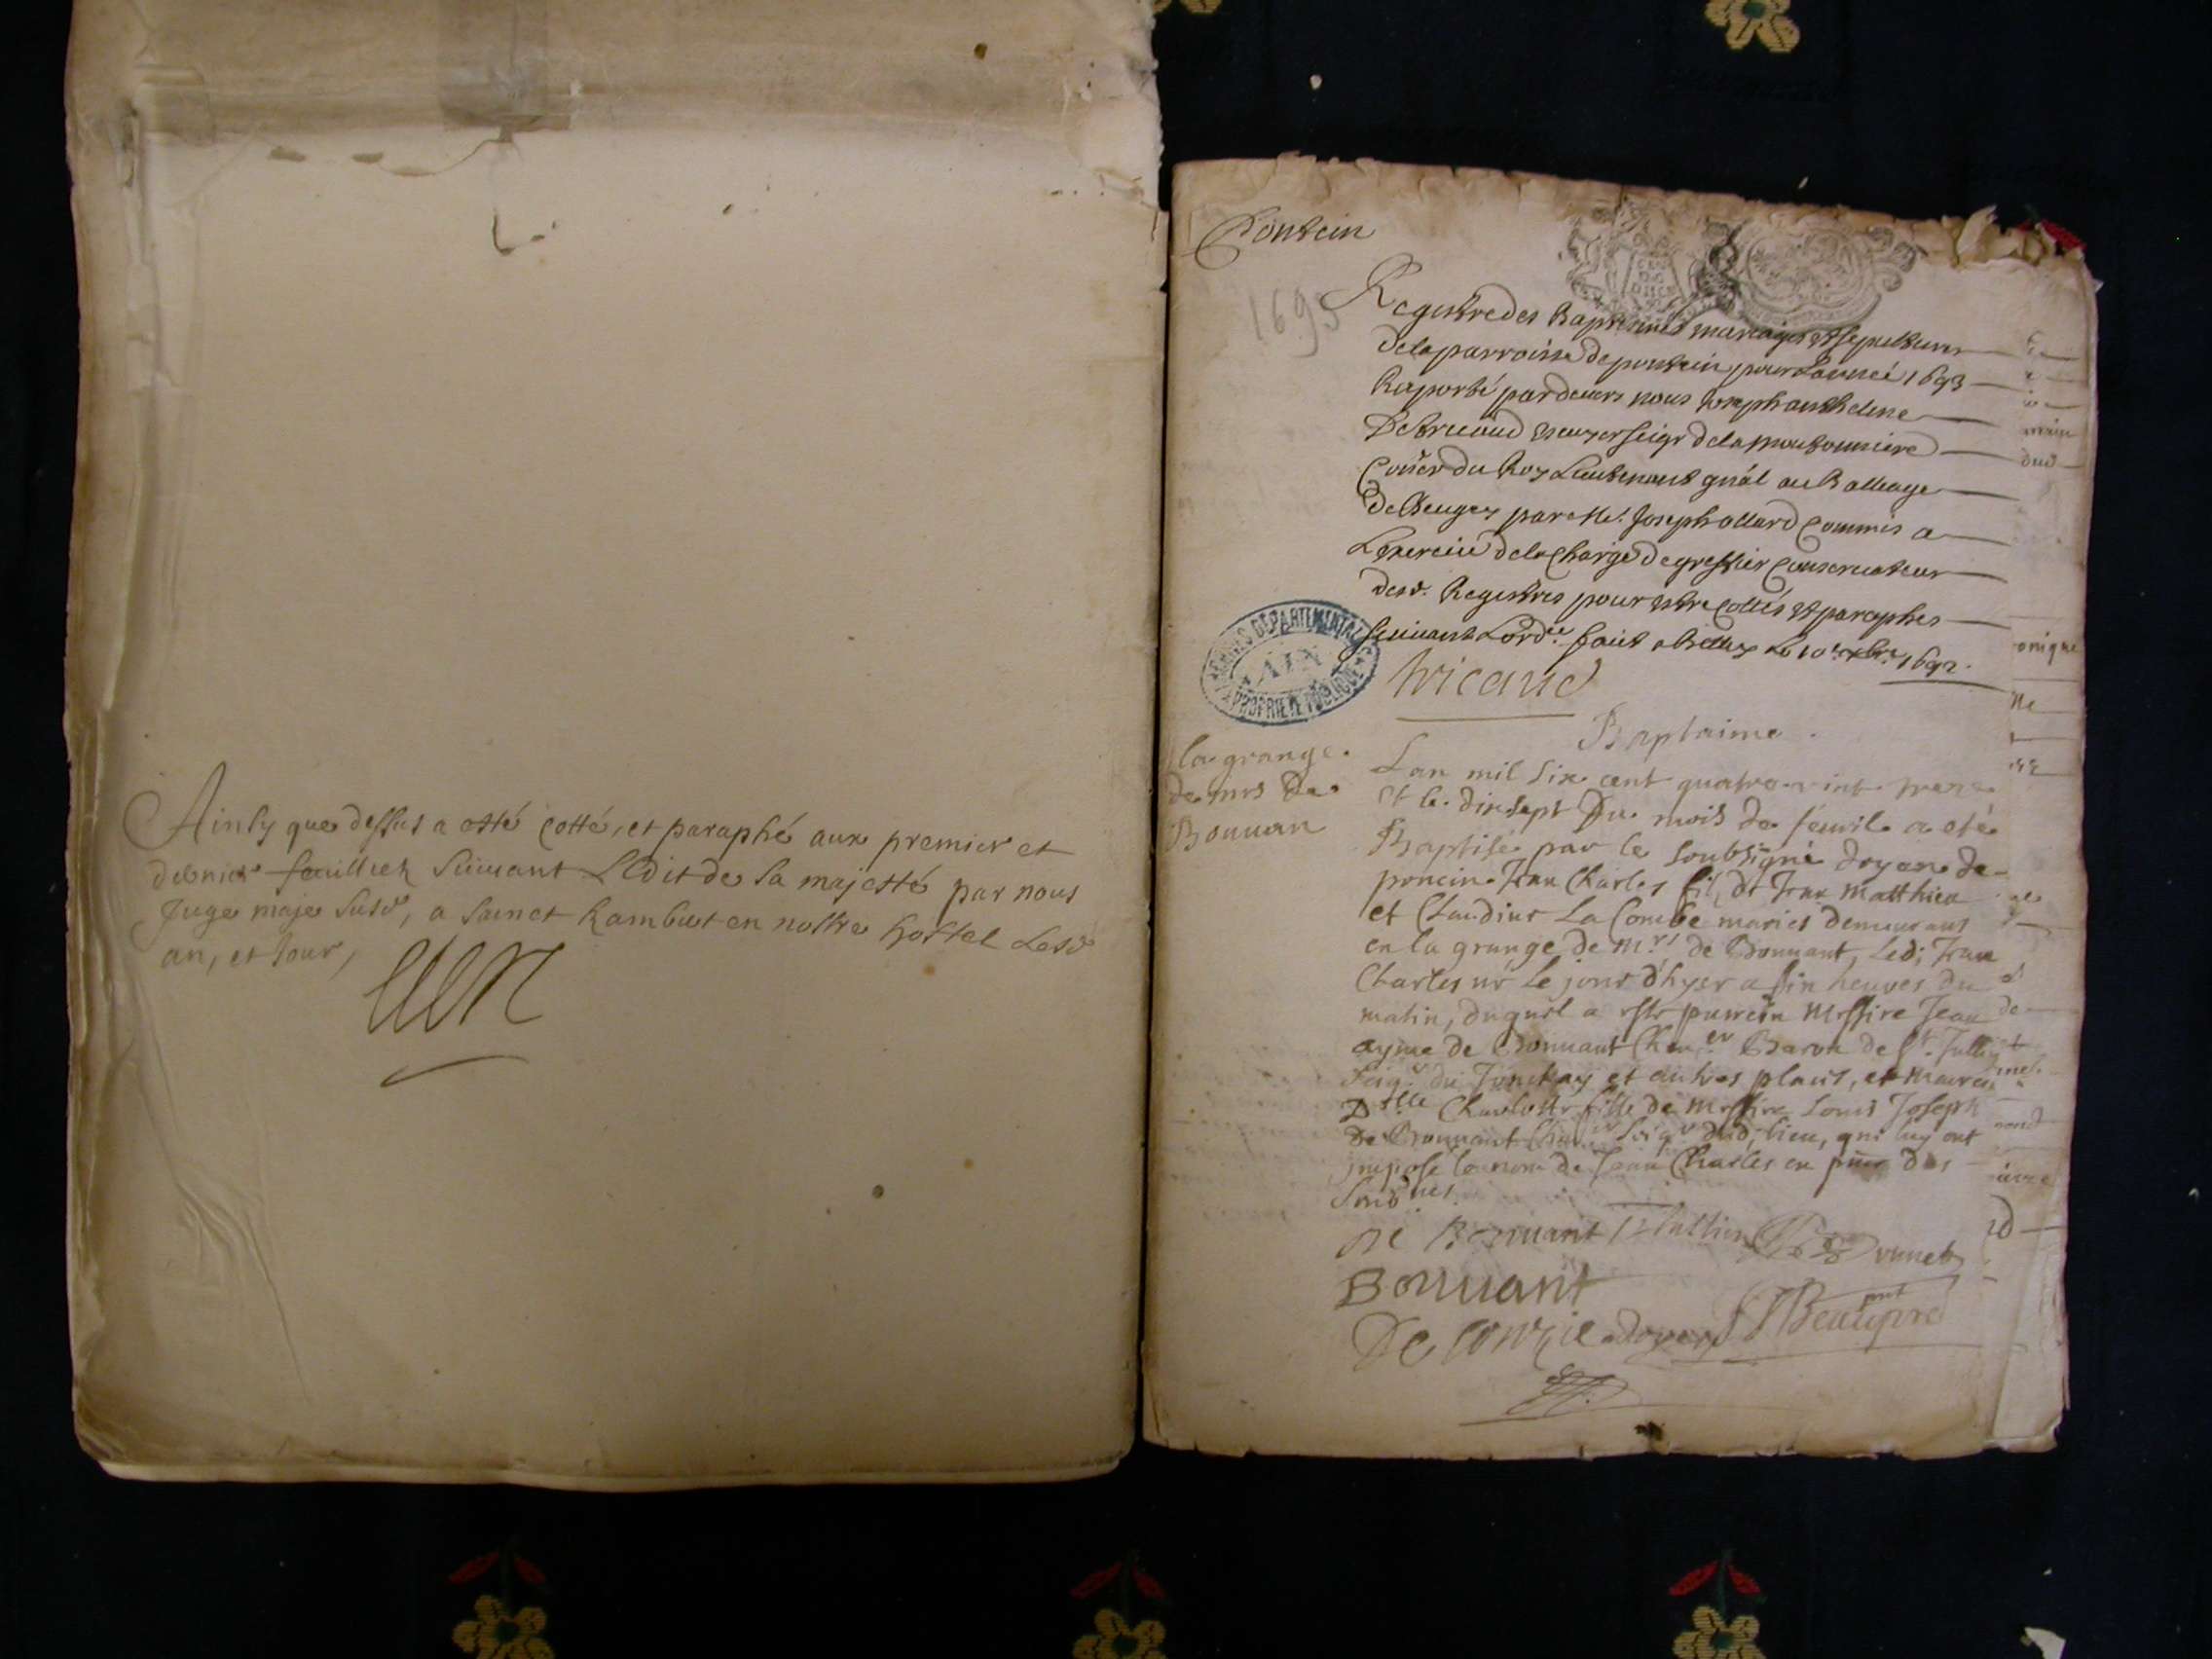 Ainsy que dessus a esté cotté, et paraphé aux premier et
dernier feuillietz suiuant L'Edit de sa majesté par nous
Juge maje susd, a sainct Rambert en nostre hostel Lesd
an, et jour,
Pontcin
1693
Registre des Baptesmes mariages et sepultures
de la parroisse de pontcin pour L'année 1693
Raporté pardeuers nous Joseph anthelme
De Tricaud escuyer seigr de la moutonniere
Coner du Roy Lieutenant gnal au Balliage
De Beugey par Me. Joseph allard Commis a
L'exercice de la Charge de greffier Conseruateur
desd. Registres pour estre cottés et paraphes
suiuant L'ord.ce fait a Belley Le 10.e xbre 1692.
tricaud
ARCHIVES DEPARTEMENTALES
AIN
PROPRIETE PUBLIQUE
Baptaime.
la grange
de mrs De
Bouuan
L'an mil six cent quatre vint treze
et le dix sept Du mois de feuril a eté
Baptisé par le soubsigné doyen de
poncin Jean Charles fil, de Jean Matthieu
et Claudine La Combe mariés demeurans
en la grange de mrs de Bouuant, Led; Jean
Charles né le jour d'hyer a six heures du
matin, duquel a esté parrein Messire Jean
ayme de Bouuant Cheu.er Baron de St. Jullin
seigr. du et autres places, et marreine
D.elle Charlotte fille de Messire Louis Joseph
De Bouuant seigr dud; lieu, qui luy ont
imposé le nom de Jean Charles en des
Bouuant St Jullin
Bouuant
De conzié doyen Beaupré pnt